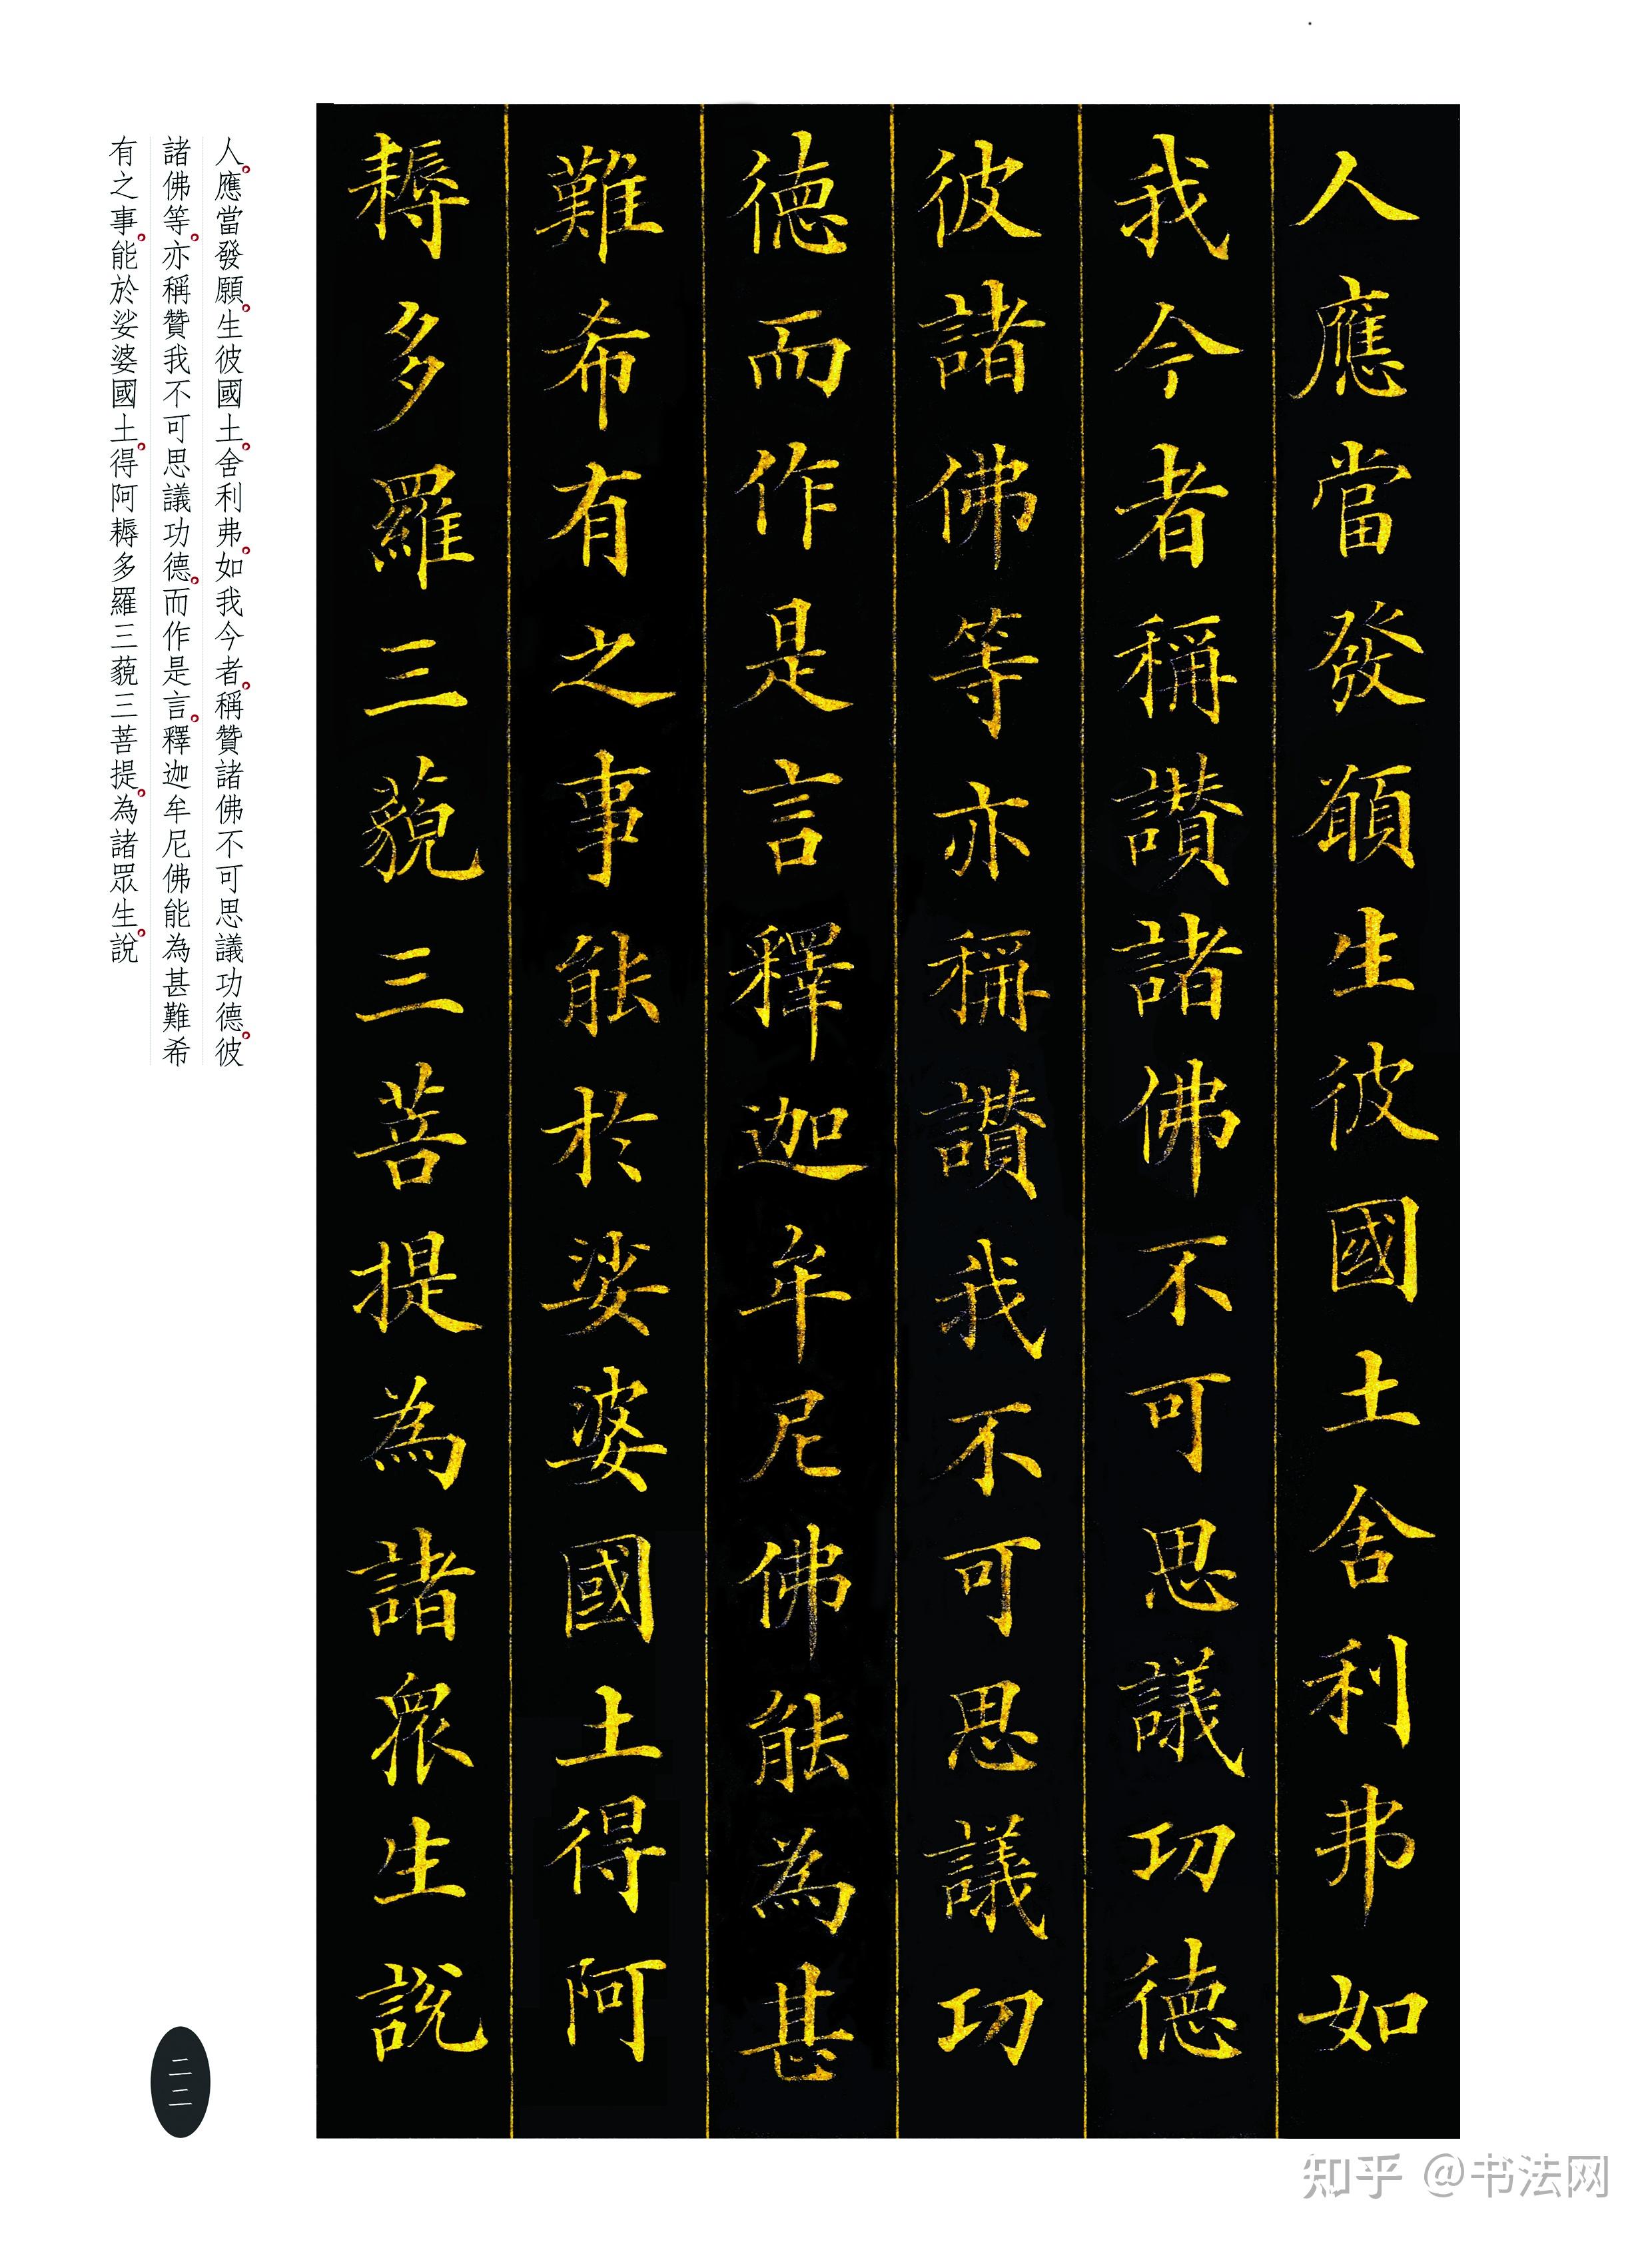 人應當發願生彼國土舍利弗如
我今者稱讚諸佛不可思議功德
彼諸佛等亦稱讚我不可思議功
德而作是言釋迦牟尼佛能為甚
難希有之事能於娑婆國土得阿
耨多羅三藐三菩提為諸眾生說
人。應當發願。生彼國土。舍利弗。如我今者。稱贊諸佛不可思議功德。彼
諸佛等。亦稱贊我不可思議功德。而作是言。釋迦牟尼佛能為甚難希
有之事。能於娑婆國土。得阿耨多羅三藐三菩提。為諸眾生。說
二二
知乎 @书法网